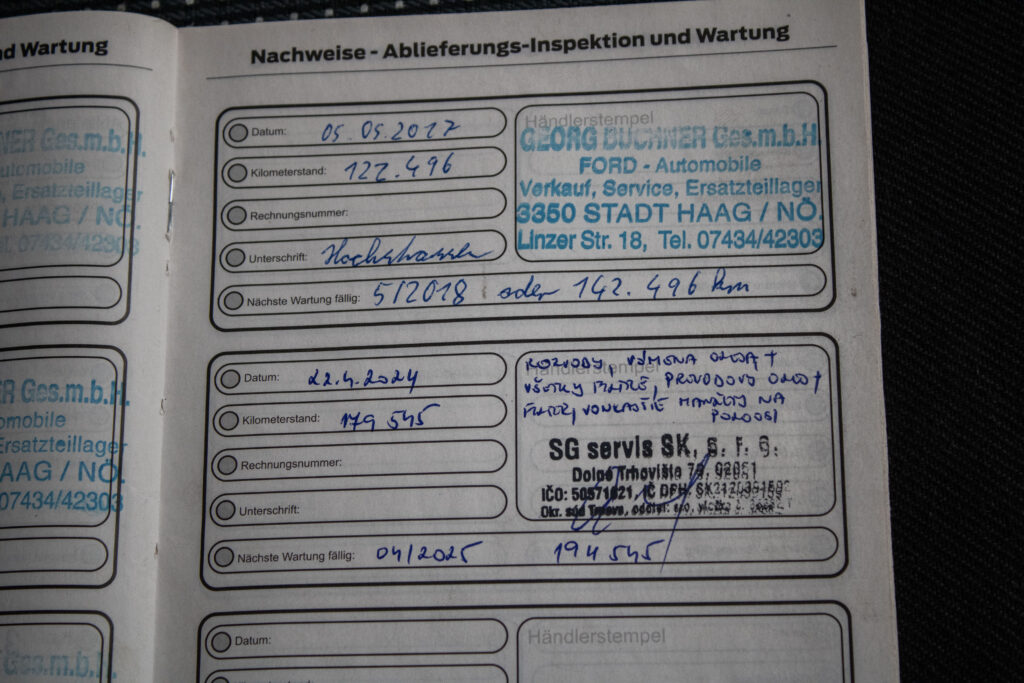 nd Wartung
NER Ges.m.b.H.
utomobile
e, Ersatzteillager
HAAG / NÖ.
el. 07434/42303
ER Ges.m.b.H.
omobile
Ersatzteillager
AAG / NÖ.
07434/42303
Ges.m.b.H.
Nachweise - Ablieferungs-Inspektion und Wartung
Datum: 05.05.2017
Kilometerstand: 122.496
Rechnungsnummer:
Unterschrift:
Nächste Wartung fällig: 5/2018 oder 142.496 km
Händlerstempel
GEORG BUCHNER Ges.m.b.H.
FORD - Automobile
Verkauf, Service, Ersatzteillager
3350 STADT HAAG / NÖ.
Linzer Str. 18, Tel. 07434/42303
Datum: 22.4.2024
Kilometerstand: 179 545
Rechnungsnummer:
Unterschrift:
Nächste Wartung fällig: 04/2025 194 545
Händlerstempel
ROZVODY, VÝMENA OLEJA +
VŠETKY FILTRE, PREVODOVÝ OLEJ +
FILTER, VONKAJŠIE MANŽETY NA
POLOOSI
SG servis SK, s. r. o.
Dolné Trhovište 79, 92061
IČO: 50571621, IČ DPH: 
Okr. súd Trnava, oddiel: sro,
Datum:
Händlerstempel